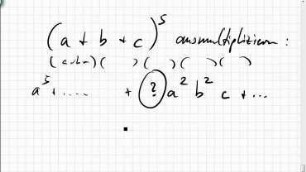 (a + b + c)^5 ausmultiplizieren:
( )( )( )( )
a^5 + .... + ? a^2 b^2 c + ...